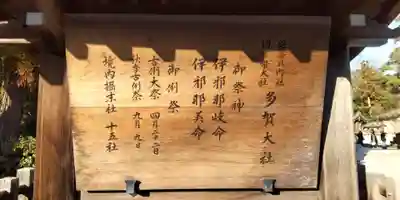 多賀大社
御祭神
伊邪那岐命
伊邪那美命
御例祭
古例大祭 四月二十二日
秋季古例祭 九月九日
境内摂末社 十五社